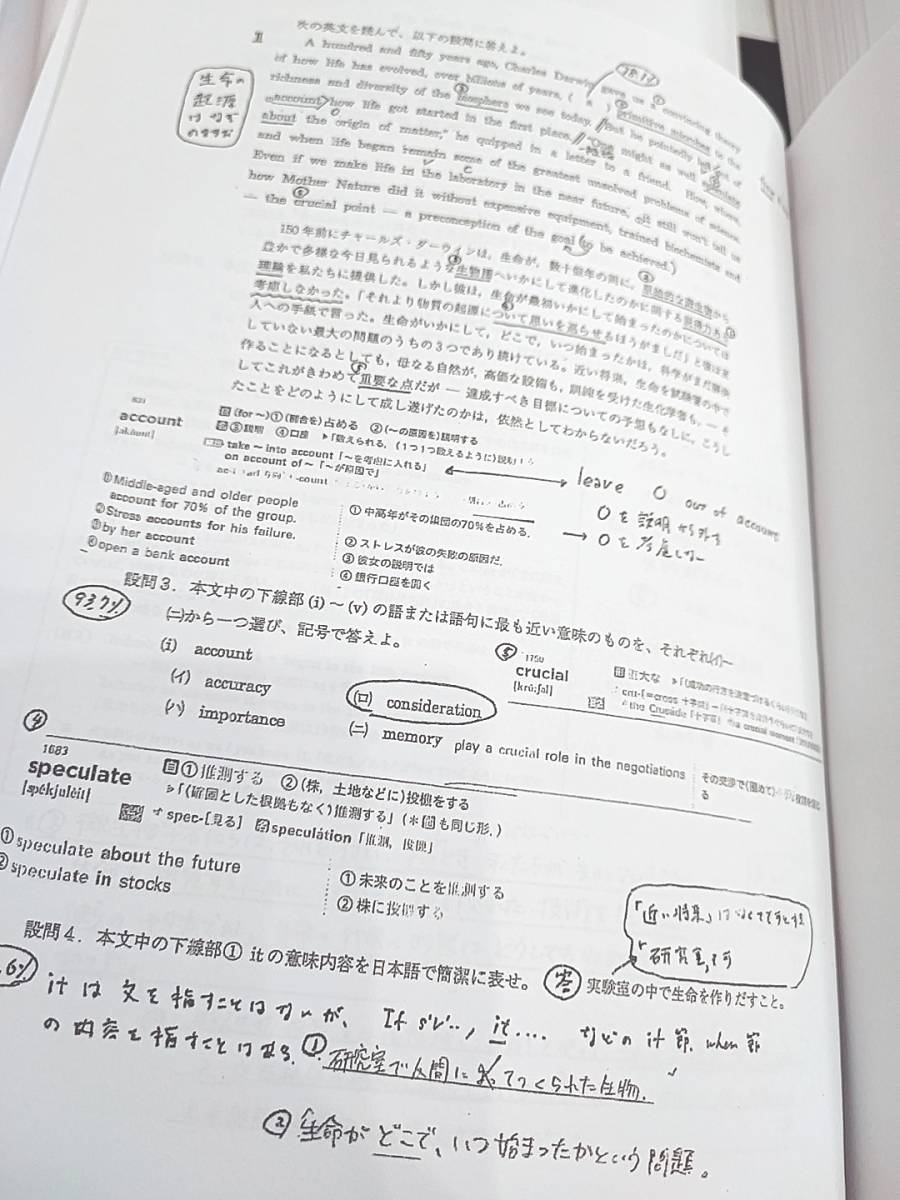 次の英文を読んで、以下の設問に答えよ。
1
A hundred and fifty years ago, Charles Darwin gave us a convincing theory
of how life has evolved, over billions of years, ( a ) primitive microbes to the
richness and diversity of the biosphere we see today. But he pointedly left out of
account how life got started in the first place. "One might as well speculate
about the origin of matter," he quipped in a letter to a friend. How, where,
and when life began remain some of the greatest unsolved problems of science.
Even if we make life in the laboratory in the near future, it still won't tell us
how Mother Nature did it without expensive equipment, trained biochemists and
— the crucial point — a preconception of the goal to be achieved.
生命の
起源
は
150年前にチャールズ・ダーウィンは、生命が、数十億年の間に、原始的な微生物から
豊かで多様な今日見られるような生物圏へいかにして進化したのかに関する説得力ある
理論を私たちに提供した。しかし彼は、生命が最初いかにして始まったのかについては
考慮しなかった。「それより物質の起源について思いを巡らせるほうがましだ」と彼は友
人への手紙で言った。生命がいかにして、どこで、いつ始まったかは、科学がまだ解決
していない最大の問題のうちの3つであり続けている。近い将来、生命を試験管の中で
作ることになるとしても、母なる自然が、高価な設備も、訓練を受けた生化学者も、— そ
してこれがきわめて重要な点だが — 達成すべき目標についての予想もなしに、こうし
たことをどのようにして成し遂げたのかは、依然としてわからないだろう。
account
[əkáunt]
自(for ~)①(割合を)占める ②(~の原因を)説明する
名③説明 ④口座
take ~ into account「~を考慮に入れる」
on account of ~「~が原因で」
leave O out of account
Oを説明から外す
→ Oを考慮しない
①Middle-aged and older people
account for 70% of the group.
②Stress accounts for his failure.
③by her account
④open a bank account
①中高年がその集団の70%を占める.
②ストレスが彼の失敗の原因だ.
③彼女の説明では
④銀行口座を開く
設問3. 本文中の下線部(i)~(v)の語または語句に最も近い意味のものを、それぞれ(イ)~
(ニ)から一つ選び、記号で答えよ。
93.7%
(i) account
(イ) accuracy
(ロ) consideration
(ハ) importance
(ニ) memory
⑤
1750
crucial
[krúːʃəl]
play a crucial role in the negotiations
④
1683
speculate
[spékjulèit]
自①推測する ②(株, 土地などに)投機をする
▷「(確固とした根拠もなく)推測する」
spec-[見る] 名speculátion「推測, 投機」
①speculate about the future
②speculate in stocks
①未来のことを推測する
②株に投機する
設問4. 本文中の下線部① itの意味内容を日本語で簡潔に表せ。
答 実験室の中で生命を作りだすこと。
「近い将来」は
「研究室」
it は文を指すことはないが、If SV…, it…. などの if 節, when 節
の内容を指すことはある。
① 研究室で人間によってつくられた生物.
② 生命がどこで、いつ始まったかという問題。